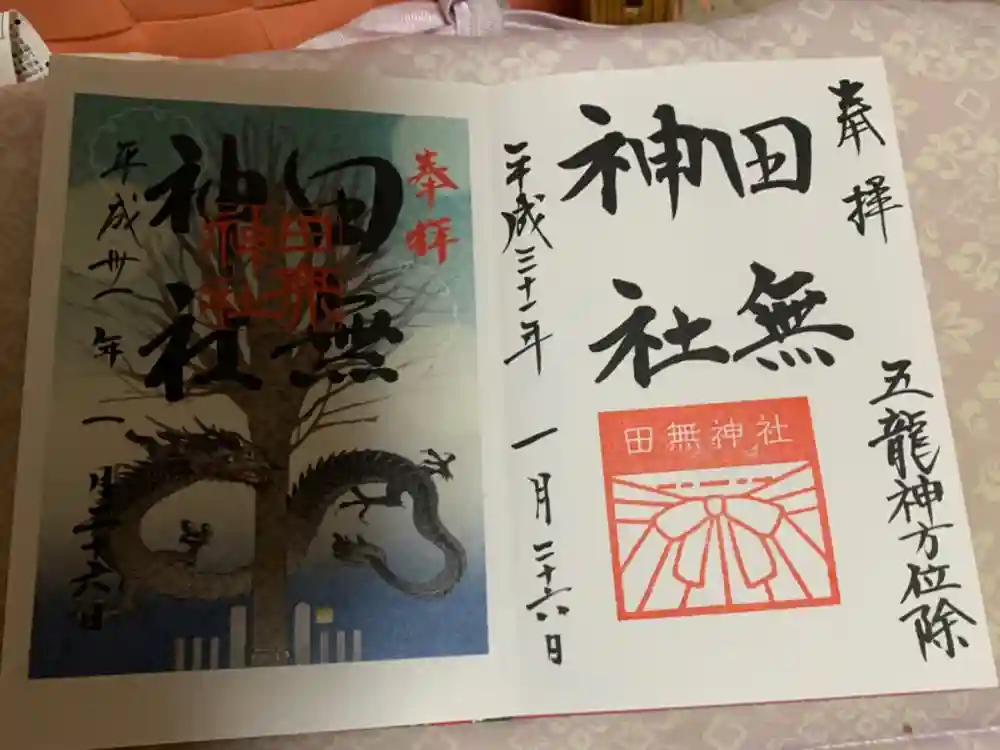 奉拝
五龍神方位除
田無
神社
田無神社
平成三十一年一月二十六日
奉拝
田無
神社
田無
神社
平成卅一年一月二十六日